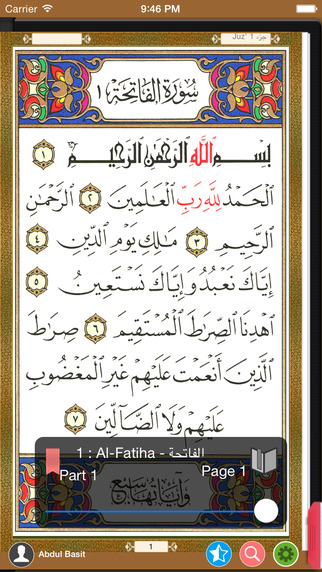 Carrier 9:46 PM
Juz' 1 جزء
سُورَةُ الفَاتِحَةِ ١
بِسْمِ ٱللَّهِ ٱلرَّحْمَٰنِ ٱلرَّحِيمِ ١
ٱلْحَمْدُ لِلَّهِ رَبِّ ٱلْعَٰلَمِينَ ٢ ٱلرَّحْمَٰنِ
ٱلرَّحِيمِ ٣ مَٰلِكِ يَوْمِ ٱلدِّينِ ٤
إِيَّاكَ نَعْبُدُ وَإِيَّاكَ نَسْتَعِينُ ٥
ٱهْدِنَا ٱلصِّرَٰطَ ٱلْمُسْتَقِيمَ ٦ صِرَٰطَ
ٱلَّذِينَ أَنْعَمْتَ عَلَيْهِمْ غَيْرِ ٱلْمَغْضُوبِ
عَلَيْهِمْ وَلَا ٱلضَّآلِّينَ ٧
1 : Al-Fatiha - الفاتحة
Part 1 Page 1
وَآيَاتُهَا سَبْعٌ
1
Abdul Basit